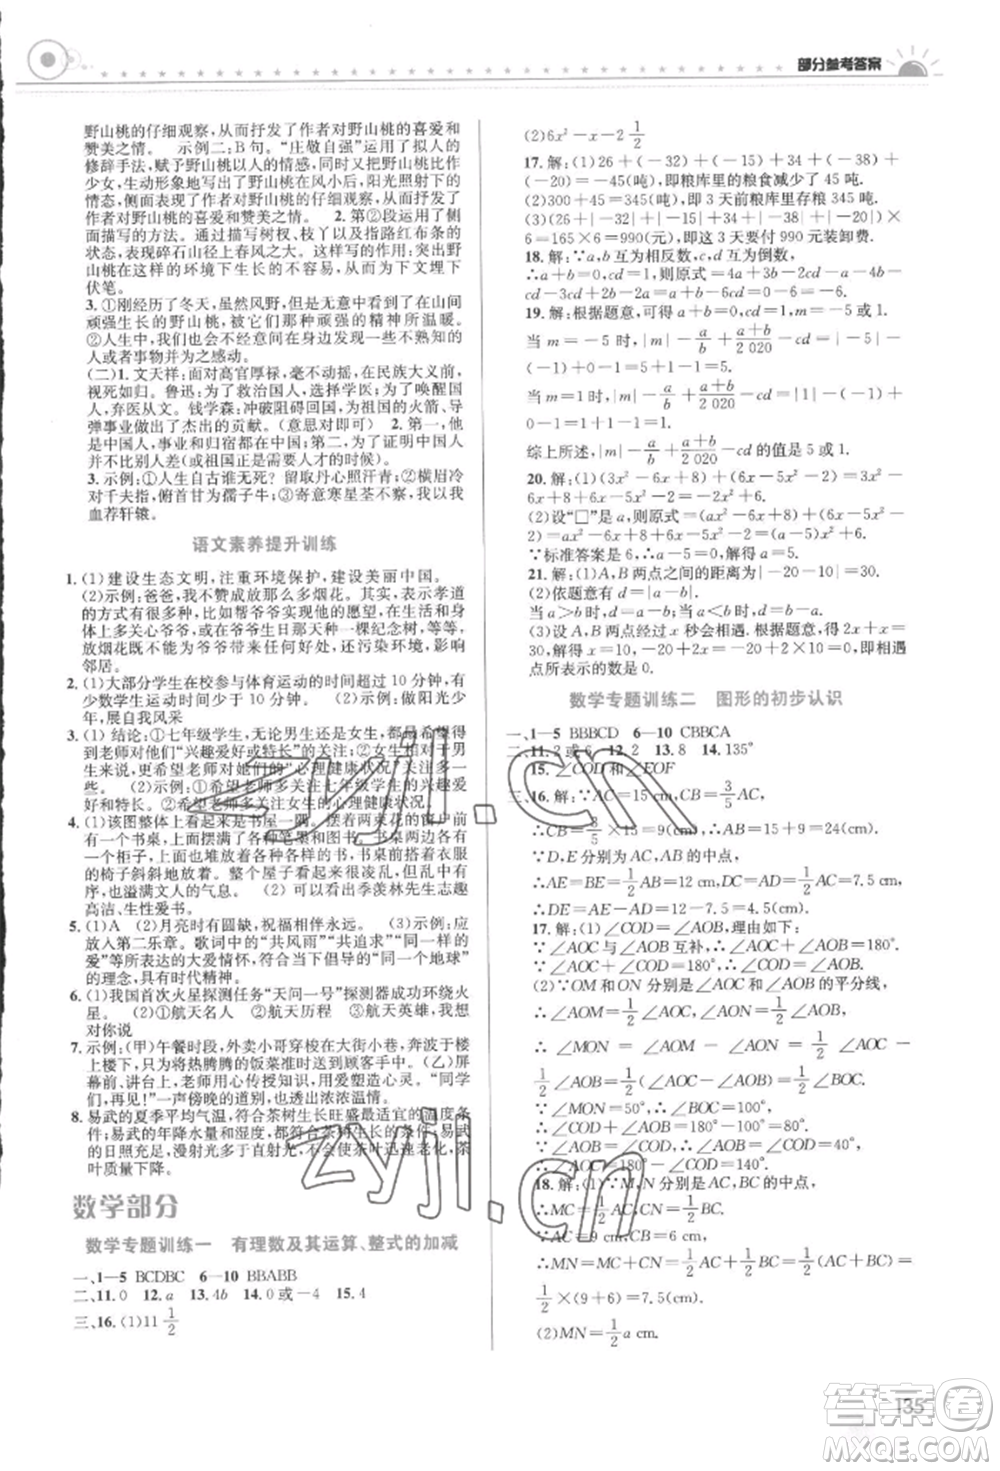 部分参考答案
野山桃的仔细观察，从而抒发了作者对野山桃的喜爱和
赞美之情。 示例二：B句。“庄敬自强”运用了拟人的
修辞手法，赋予野山桃以人的情感，同时又把野山桃比作
少女，生动形象地写出了野山桃在风小时、阳光照射下的
情态，体现了作者对野山桃的仔细观察，从而抒发了作者
对野山桃的喜爱和赞美之情。 2.第②段运用了侧
面描写的方法。从写树杈、丫以及指路红布条的情
态，表现碎石山径上春风之大。描写的作用：突出野
山桃在这样的环境下生长的不容易，也为下文埋下
伏笔。
3.①刚经历了冬天，虽然风野，但是无意中看到在山间
顽强生长的野山桃，仍会被那种顽强的美所温暖。
②人生中无意中遇到的小美好，会给人带来温暖，让
人为之感动。
(二)1.文天祥：面对高官厚禄，毫不动摇，在民族大义前，
视死如归。鲁迅：为了救治国人，选择学医；为了唤醒国
人，弃医从文。钱学森：冲破阻碍回国，为祖国的火箭、导
弹事业做出了杰出的贡献。(意思对即可) 2.第一，他
是中国人，事业和归宿都在中国；第二，为了说明中国人
并不比别人差(或祖国正是需要他的时候)。
3.示例：①人生自古谁无死？留取丹心照汗青；②横眉冷
对千夫指，俯首甘为孺子牛；③寄意寒星荃不察，我以我
血荐轩辕。
语文素养提升训练
1.(1)建设生态文明，注重环境保护，建设美丽中国。
(2)示例：爸爸，我不赞成放那么多烟花。其实表达孝道
的方式有很多种，比如：帮爷爷实现他的愿望，在身体健康
上多关心爷爷，或在爷爷生日那天种一棵纪念树，等等，
放烟花虽然能给爷爷带来喜庆，但还会污染环境，影响
邻居。
2.(1)大部分学生在校参与体育运动的时间超过10分钟，有
少数学生运动时间少于10分钟。 (2)示例：做阳光少
年，现自我风采
3.(1)结论：①七年级学生与男生相比，女生更希望
得到老师对她们“兴趣爱好”的关注；②女生与男生相
比，更希望老师对她们的“心理健康状况”进行关注。
(2)①希望老师多关注七年级学生的“兴趣爱好”；
②希望老师多关注女生的心理健康状况。
4.(1)该图整体上来看是书屋一隅。摆放着两束花的小几前
有一个书桌，书桌旁整齐地堆放着很多的书，两侧各
有一个柜子，柜子里斜斜地放着一些书，搭着衣服
的椅子斜斜地放在书桌前，整个屋子里虽没有
人，也溢满文人的气息。 (2)可以看出季羡林先生志趣
高洁、生性爱书。
5.(1)A (2)月亮时有圆缺，祝福相伴永远。 (3)示例：应
放入第二乐章。歌词中的“共风雨”“共追求”“同一样的
爱”都体现了大爱情怀，与第二乐章的“同一个地球”的
理念相吻合。
6.(1)我国首次火星探测任务“天问一号”探测器成功环绕火
星。 (2)①航天名人 ②航天历程 ③航天英雄，我想
对你说
7.示例：(甲)午餐时段，外卖小哥穿梭在大街小巷、奔波于楼上
楼下，只为将热腾腾的饭菜准时送到顾客手中 (乙)屏
幕前、讲台上，老师用爱和智慧塑造心灵。“同学们
们，再见！”一声傍晚的道别，透出浓浓温情。
8.易武的夏季平均气温，符合茶树生长旺盛最适宜的温度条
件；易武的年降水量和湿度，符合茶树生长的条件；易武
的日照充足，漫射光多于直射光，不会使茶叶迅速老化，茶
叶质量下降。
数学部分
数学专题训练一 有理数及其运算、整式的加减
一、1—5 BCDBC 6—10 BBABB
二、11.0 12.a 13.4b 14.0或－4 15.4
三、16.(1)11 1/2
(2)6x²－x－2 1/2
17.解：(1)26＋(－32)＋(－15)＋34＋(－38)＋
(－20)＝－45(吨)，即粮库里的粮食减少了45吨．
(2)300－(－45)＝345(吨)，即3天前粮库里存粮345吨．
(3)(26＋|－32|＋|－15|＋34＋|－38|＋|－20|)×
6＝165×6＝990(元)，即这3天要付990元装卸费．
18.解：∵a，b互为相反数，c，d互为倒数，
∴a＋b＝0，cd＝1，则原式＝4a＋3b－cd－a－4cd＝
3(a＋b)－5cd＝0－5＝－5．
19.解：根据题意，可得a＋b＝0，cd＝1，a/b＝－1，m＝±5．
当m＝－5时，|m|－a/b＋(a＋b)/2 020－cd＝|－5|－
(－1)＋0－1＝5＋1－1＝5．
当m＝1时，|m|－a/b＋(a＋b)/2 020－cd＝|1|－(－1)＋
0－1＝1＋1－1＝1．
综上所述，|m|－a/b＋(a＋b)/2 020－cd的值是5或1．
20.解：(1)(3x²－6x＋8)＋(6x－5x²－2)＝3x²－6x＋
8＋6x－5x²－2＝－2x²＋6．
(2)设“□”是a，则原式＝(ax²－6x＋8)＋(6x－5x²－
2)＝ax²－6x＋8＋6x－5x²－2＝(a－5)x²＋6．
∵标准答案是6，∴a－5＝0，解得a＝5．
21.解：(1)A，B两点之间的距离为|－10－20|＝30．
(2)依题意有d＝|a－b|．
当a＞b时，d＝a－b；当a＜b时，d＝b－a．
(3)设A，B两点经过x秒会相遇．根据题意，得(2＋1)x＝
30，解得x＝10，则－10＋1×10＝0．故相遇
点所表示的数是0．
数学专题训练二 图形的初步认识
一、1—5 BBBCD 6—10 CBBCA
二、11.2或6 12.2 13.8 14.135°
15.∠COD和∠EOF
三、16.解：∵AC＝15 cm，CB＝3/5 AC，
∴CB＝3/5×15＝9(cm)，∴AB＝15＋9＝24(cm)．
∵D，E分别为AC，AB的中点，
∴AE＝BE＝1/2 AB＝12 cm，AD＝1/2 AC＝7.5 cm，
∴DE＝AE－AD＝12－7.5＝4.5(cm)．
17.解：(1)∠AOC＝∠BOD．理由如下：
∵∠AOC与∠AOB互补，∴∠AOC＋∠AOB＝180°．
∵∠AOC＋∠COD＝180°，∴∠COD＝∠AOB．
(2)∵OM和ON分别是∠AOC和∠AOB的平分线，
∴∠AOM＝1/2∠AOC，∠AON＝1/2∠AOB，
∴∠MON＝∠AOM－∠AON＝1/2∠AOC－
1/2∠AOB＝1/2(∠AOC－∠AOB)＝1/2∠BOC．
∵∠MON＝50°，∴∠BOC＝100°，
∴∠COD＋∠AOB＝180°－∠BOC＝80°．
∵∠AOB＝∠COD，∴∠AOB＝∠COD＝40°，
∴∠AOC＝180°－∠COD＝140°．
18.解：(1)∵M，N分别是AC，BC的中点，
∴MC＝1/2 AC，CN＝1/2 BC．
∵AC＝9 cm，CB＝6 cm，
∴MN＝MC＋CN＝1/2 AC＋1/2 BC＝1/2(AC＋BC)＝
1/2×(9＋6)＝7.5(cm)．
(2)MN＝1/2 a cm．
135
zyjl.cn
zyjl.cn
答案圈
MXQE.COM